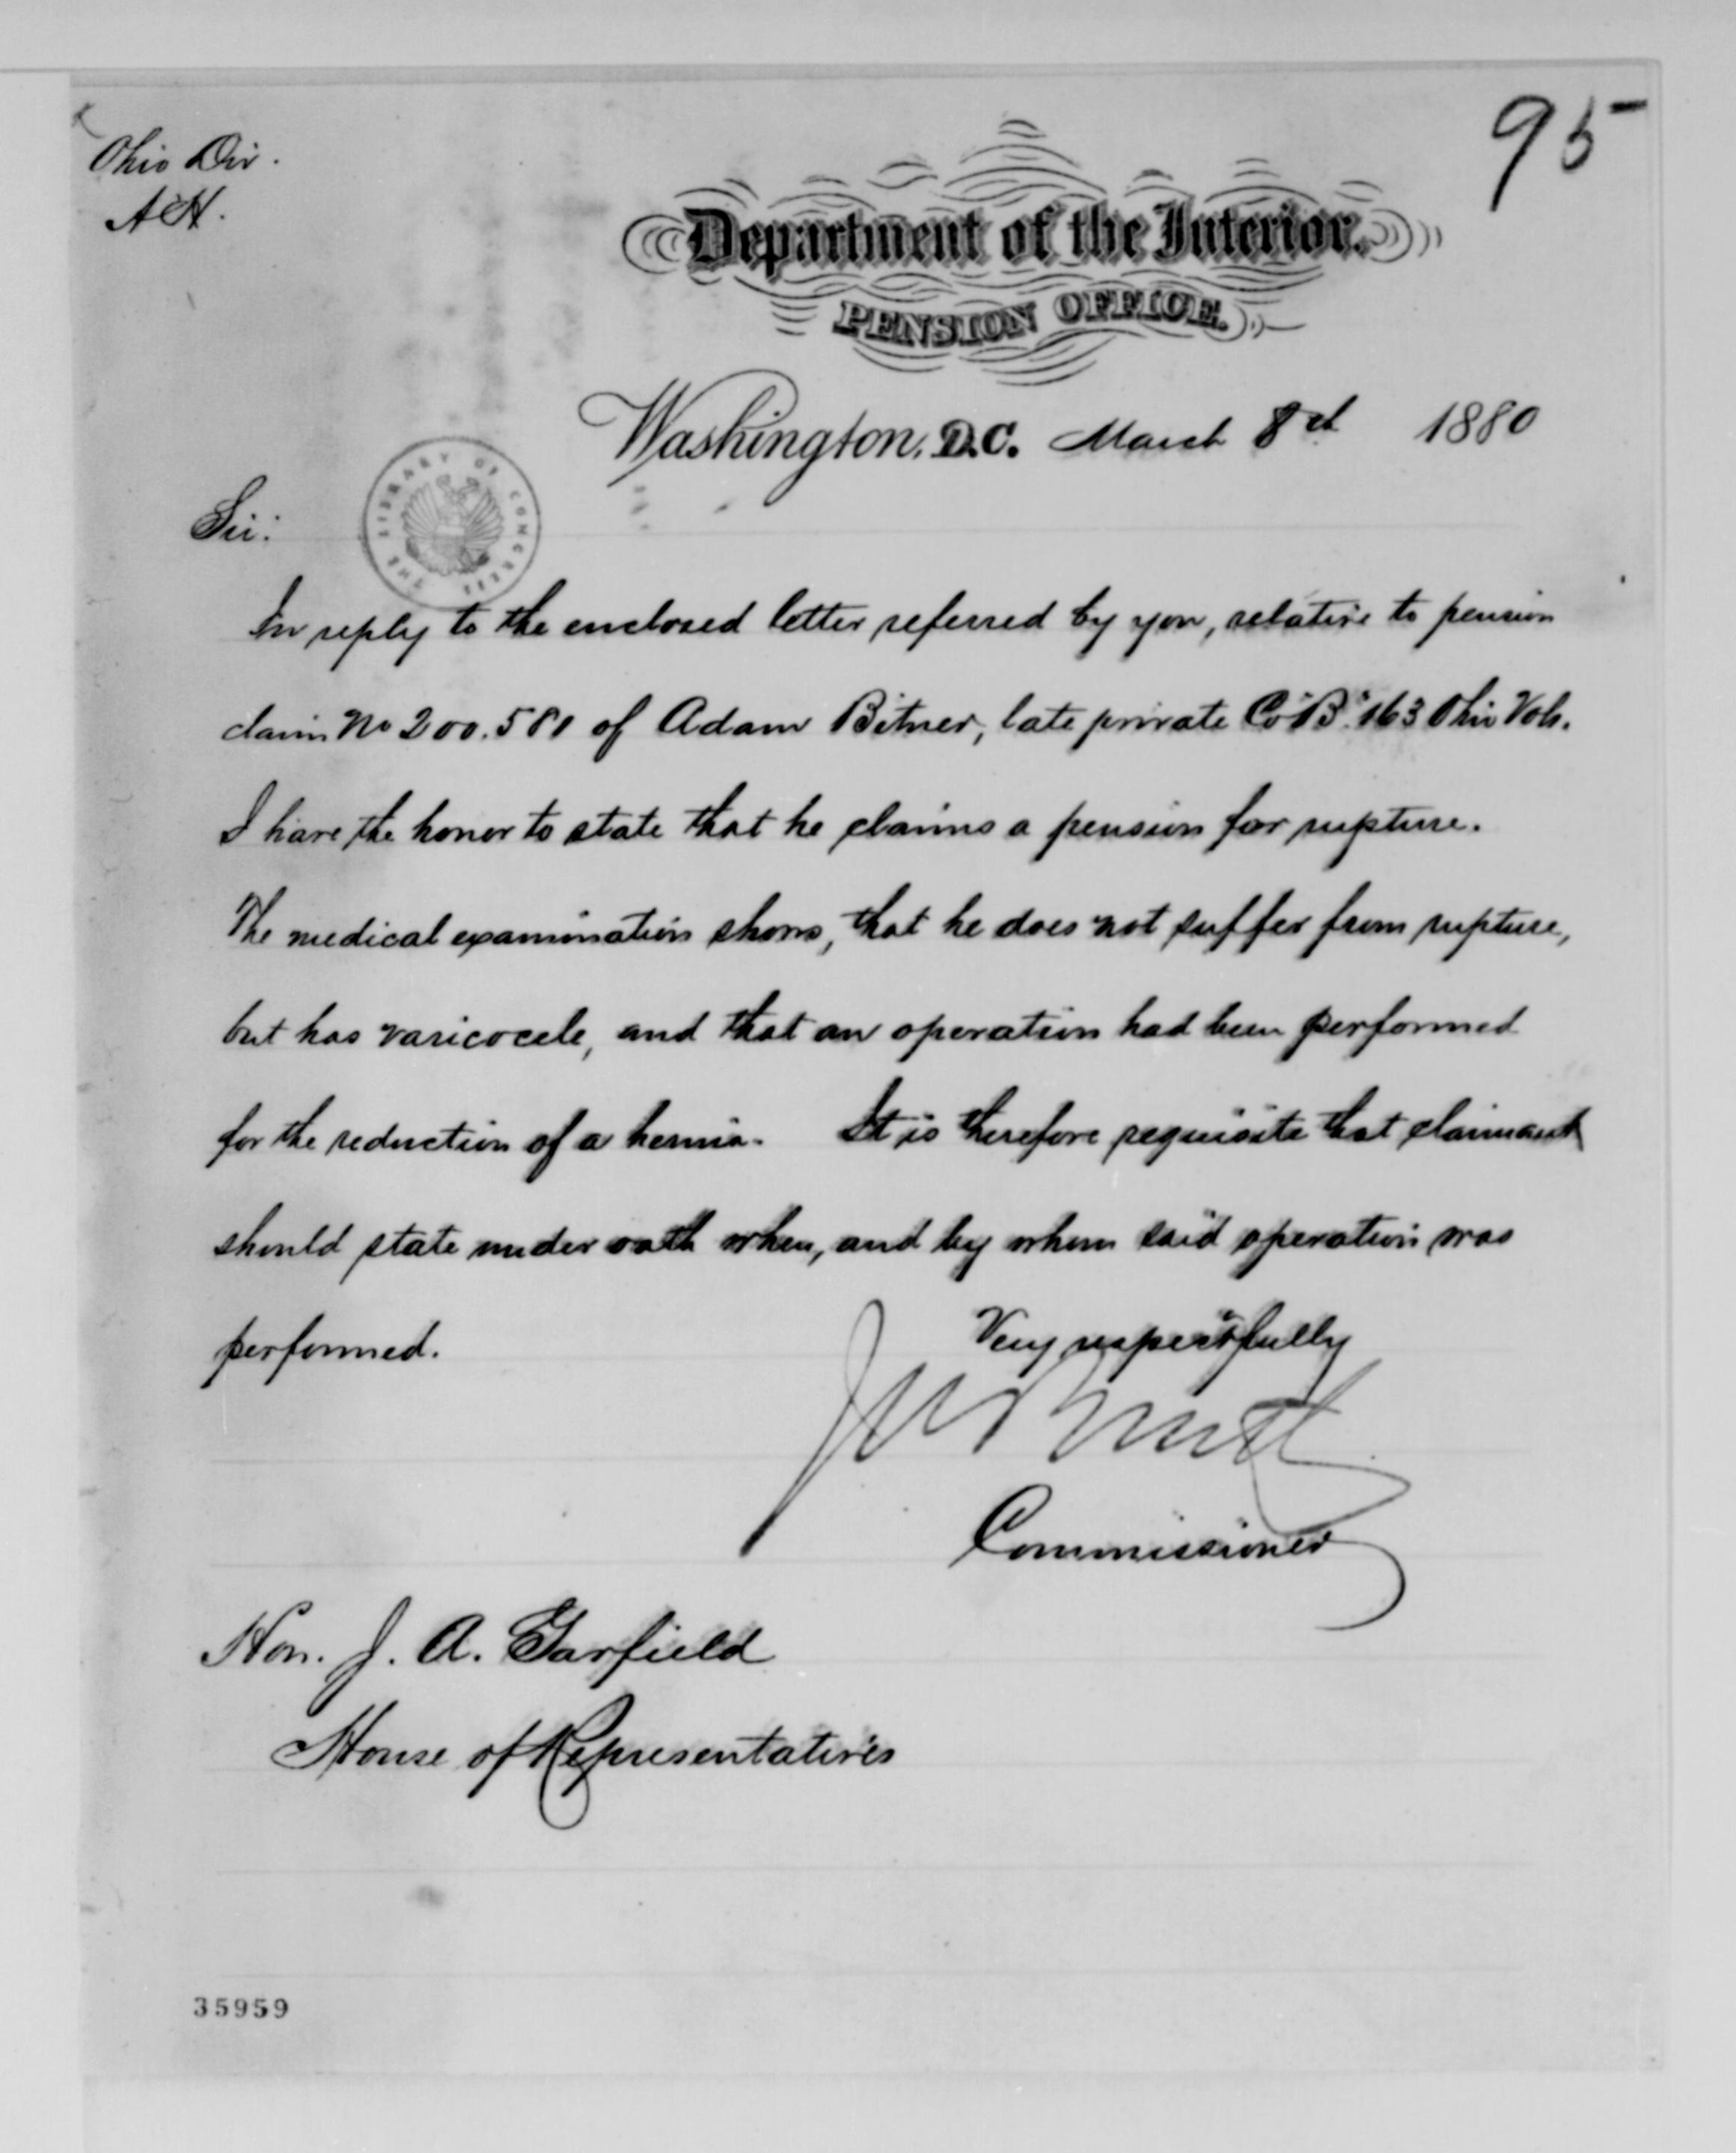 95
Ohio Div.
A.H.
Department of the Interior.
PENSION OFFICE.
Washington, D.C. March 8th 1880
THE LIBRARY OF CONGRESS
Sir:
In reply to the enclosed letter referred by you, relative to pension
claim No 200.580 of Adam Bitner, late private Co "B" 163 Ohio Vols.
I have the honor to state that he claims a pension for rupture.
The medical examination shows, that he does not suffer from rupture,
but has varicocele, and that an operation had been performed
for the reduction of a hernia. It is therefore requisite that claimant
should state under oath when, and by whom said operation was
performed.
Very respectfully
Commissioner
Hon. J. A. Garfield
House of Representatives
35959